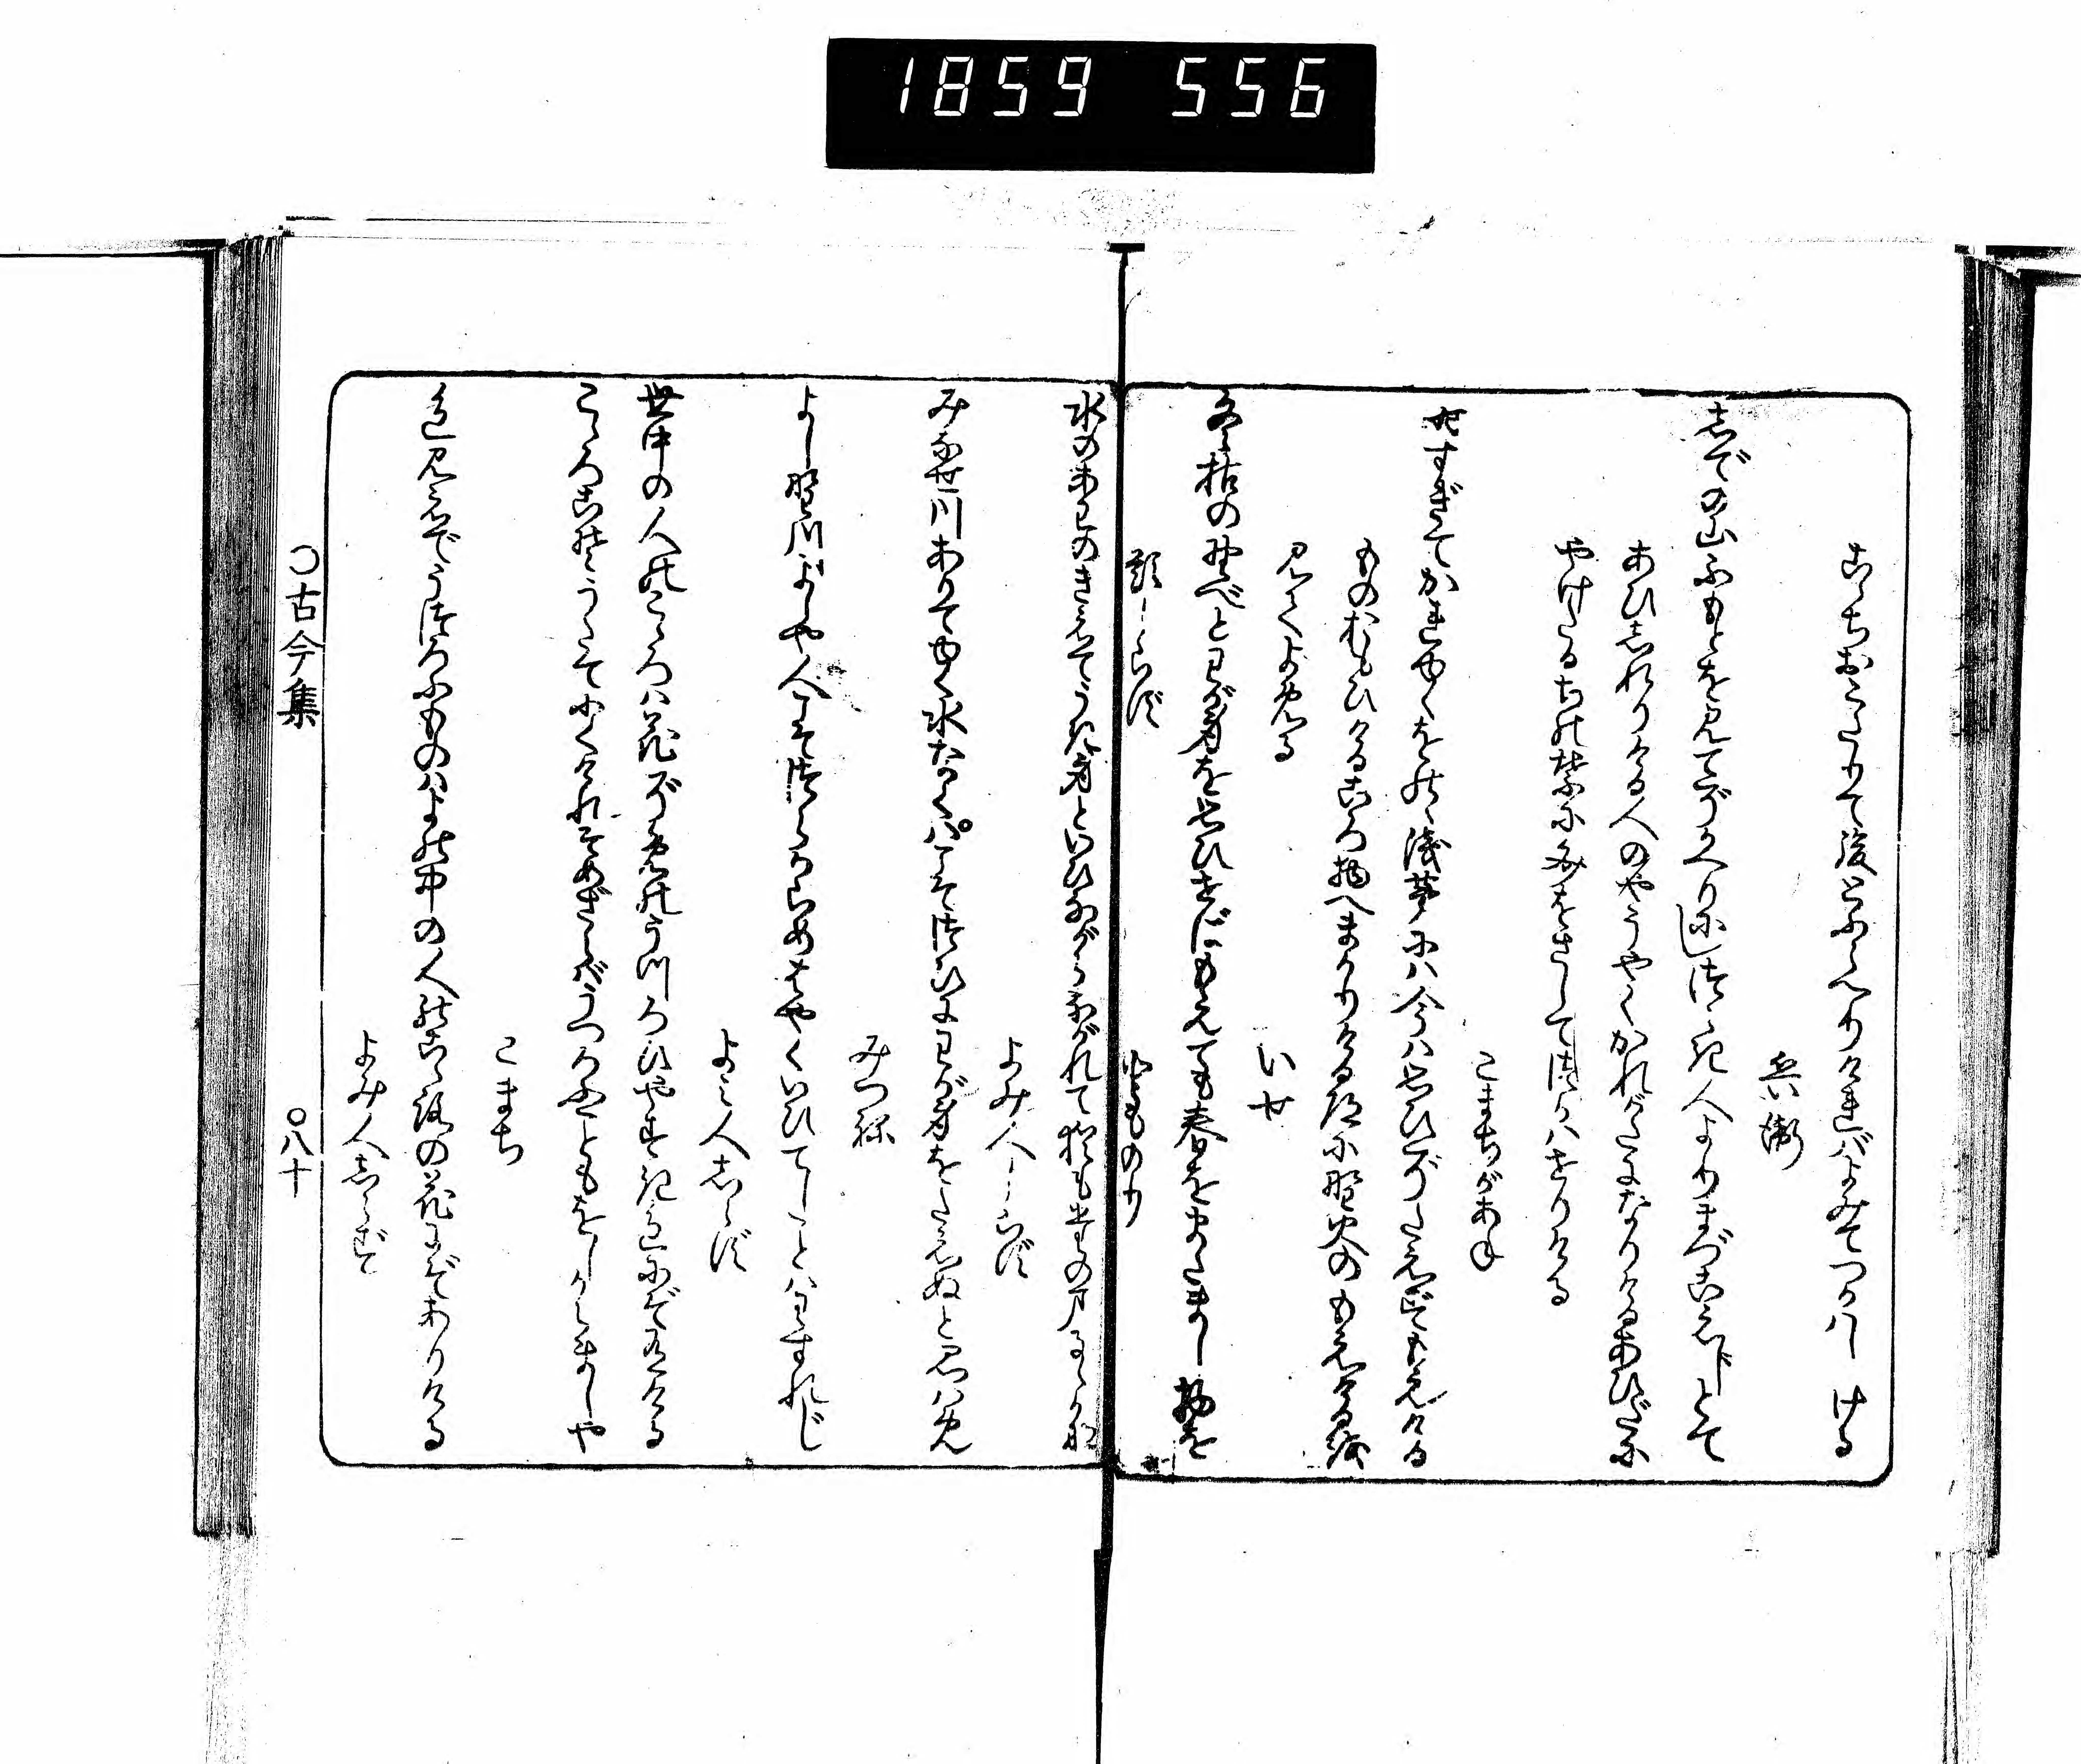 1859 556
こゝちおこたりて後とふらへりければよみてつかはしける
兵衛
志での山ふもとを見てぞかへりにしつらき人よりまづこえじとて
あひ志れりける人のやうやくかれがたになりけるあひだに
やけたるちの葉にふみをさしてつかはせりける
こまちがあね
時すぎてかれゆくをのゝ浅茅には今は思ひぞたえずもえける
ものおもひけるころ物へまかりける道に野火のもえけるを
見てよめる
いせ
冬枯の野べとわが身を思ひせばもえても春をまたまし物を
題しらず
とものり
水のあわのきえでうき身といひながら流れて猶もたのまるゝかな
よみ人しらず
みなせ川ありて行水なくはこそつひにわが身をたえぬと思はめ
みつね
よし野川よしや人こそつらからめはやくいひてしことはわすれじ
よみ人志らず
世中の人のこゝろは花ぞめのうつろひやすき色にぞ有ける
こゝろこそうたてにくけれそめざらばうつろふこともをしからましや
こまち
色見えでうつろふものはよの中の人のこゝろの花にぞありける
よみ人志らず
○古今集
○八十